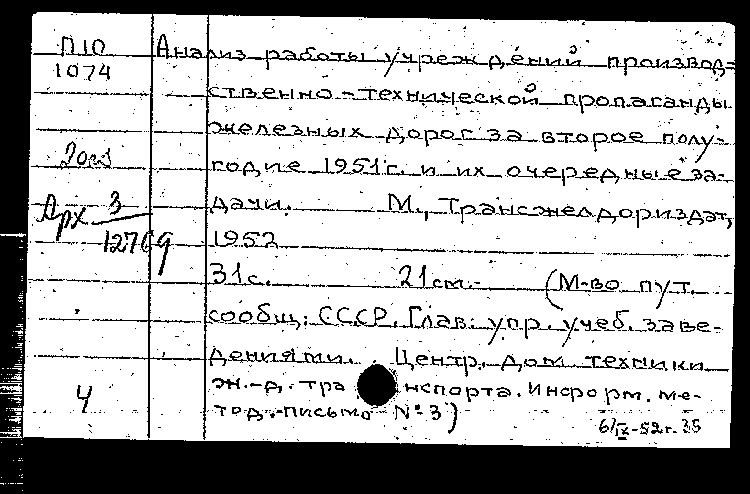 П10
1074
Арх 3/12769
4
Анализ работы учреждений производ=
ственно-технической пропаганды
железных дорог за второе полу-
годие 1951 г. и их очередные за-
дачи. М., Трансжелдориздат,
1952
31с. 21см.- (М-во пут.
сообщ. СССР. Глав. упр. учеб. заве-
дениями. Центр. дом техники
ж.-д. транспорта. Информ. ме-
тод. письмо № 3)
6/IX-52г. 35